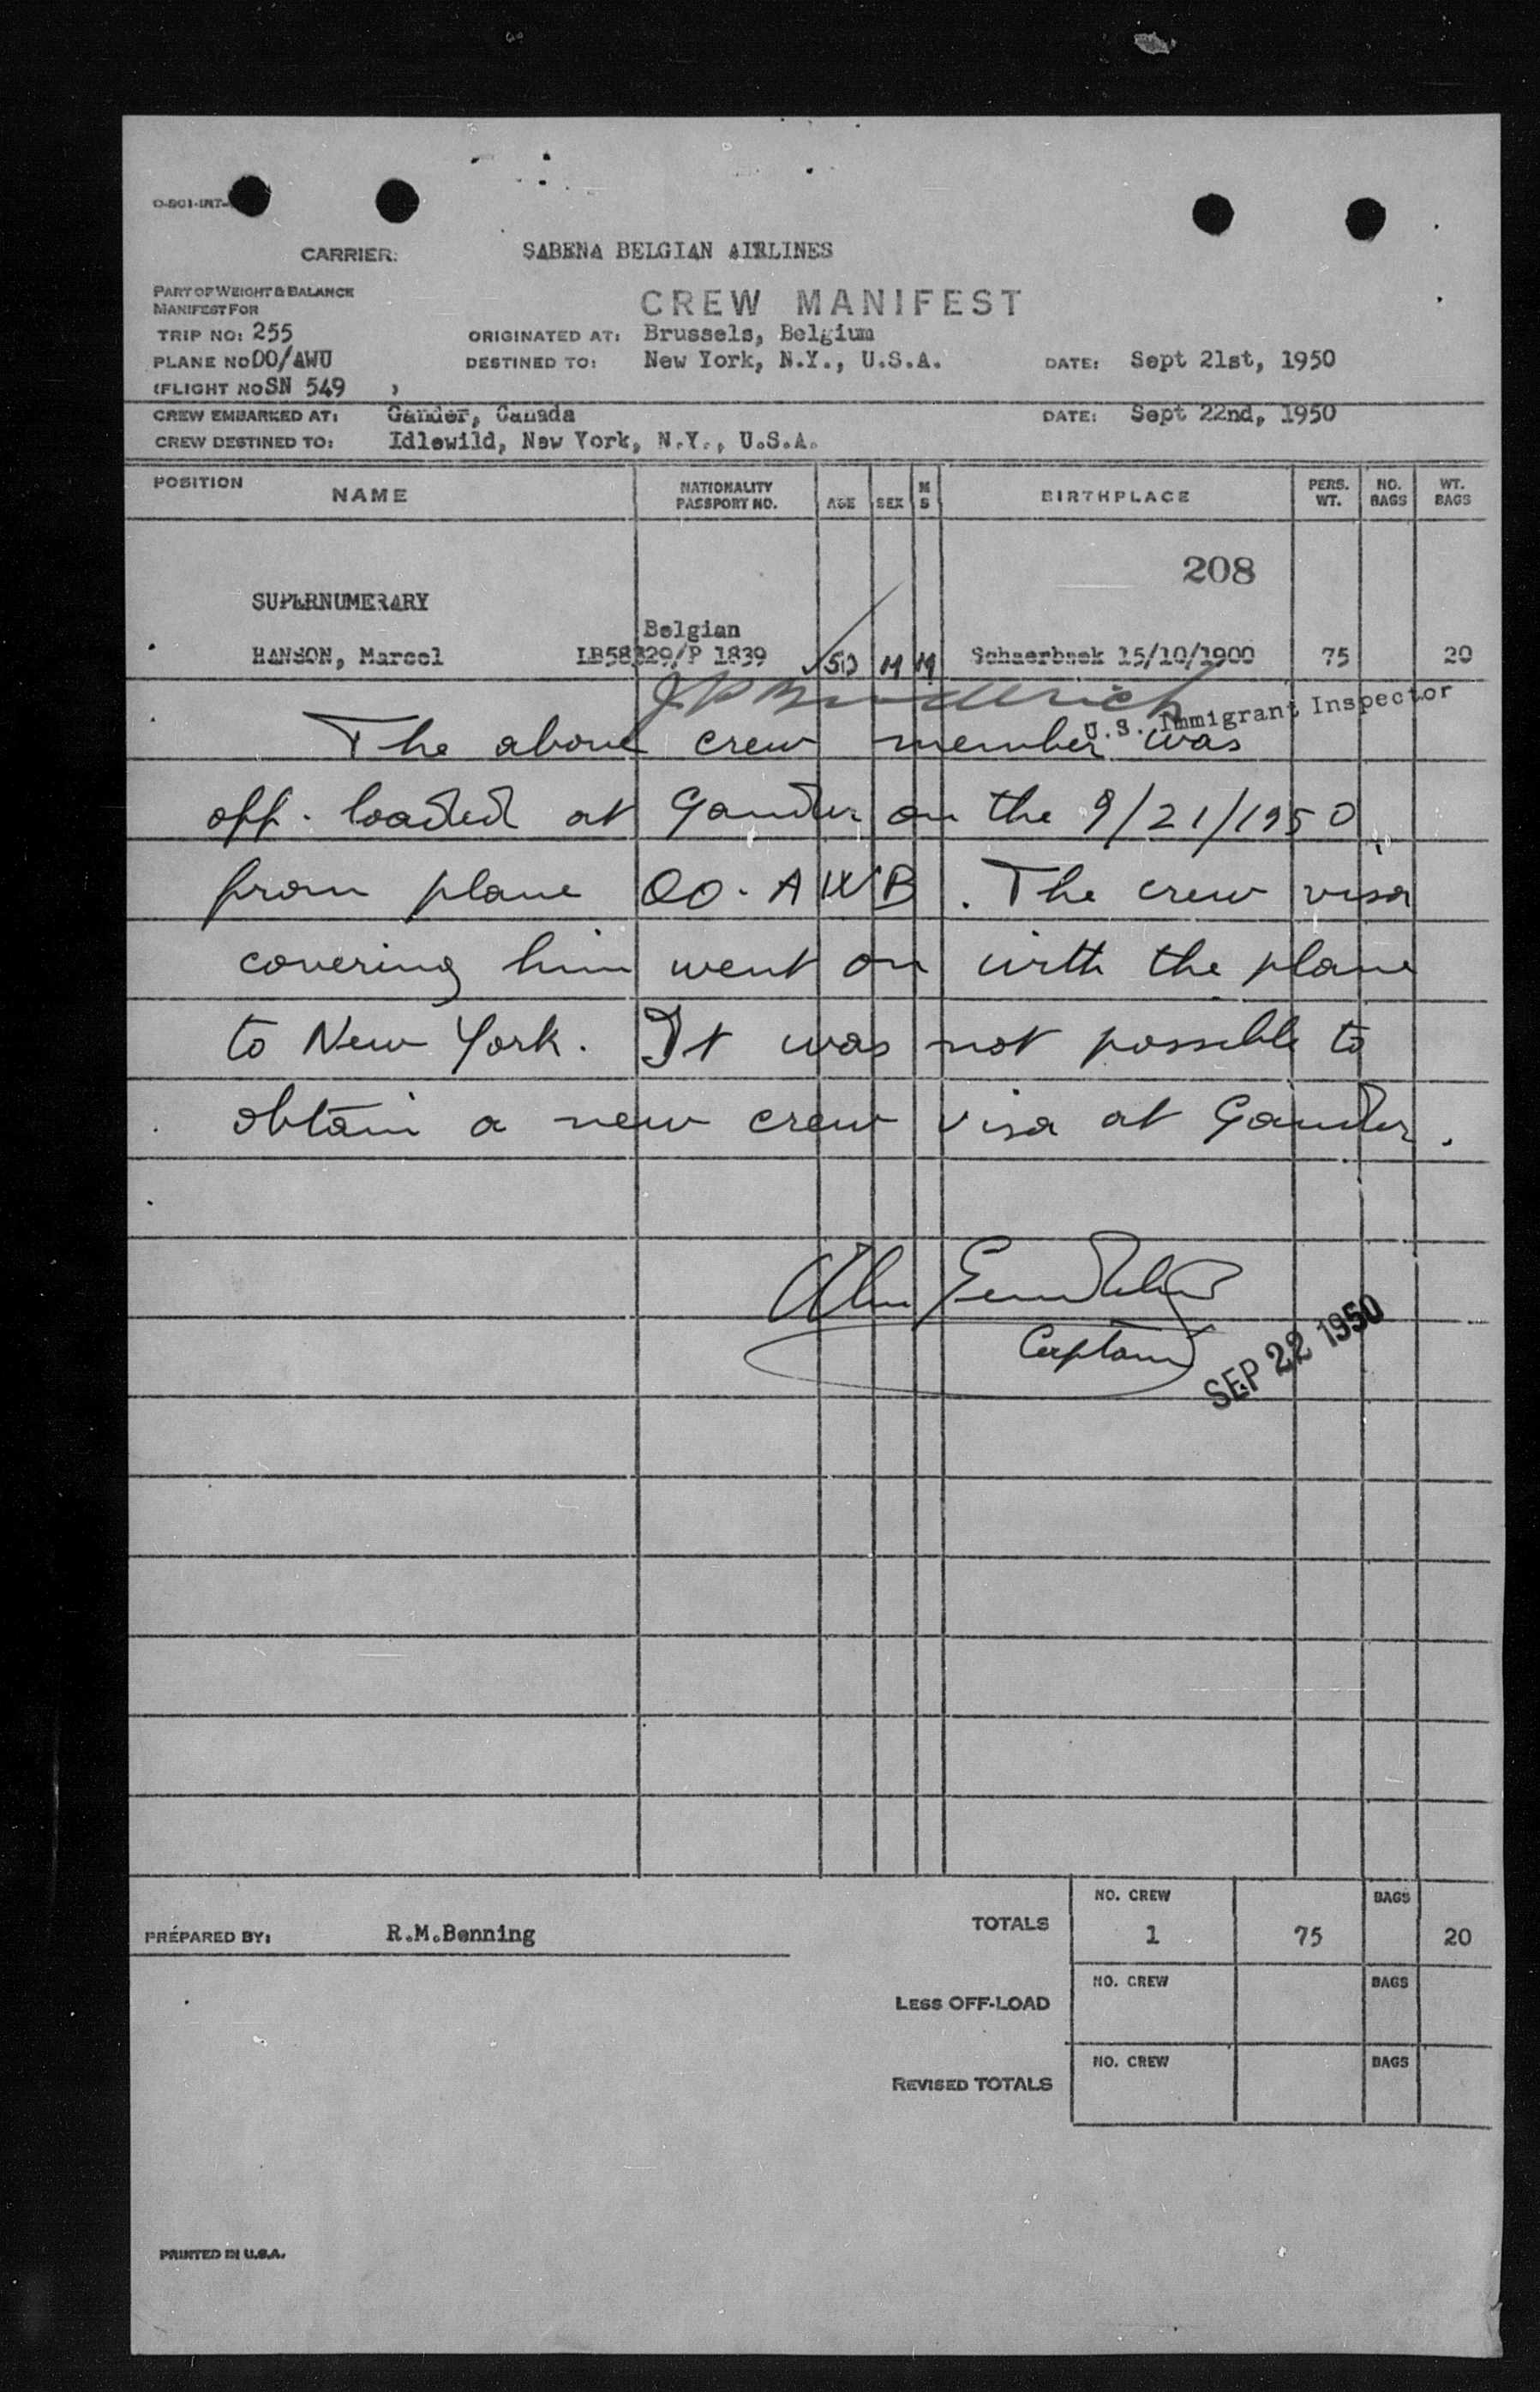 CARRIER: SABENA BELGIAN AIRLINES
PART OF WEIGHT & BALANCE
MANIFEST FOR
CREW MANIFEST
TRIP NO: 255 ORIGINATED AT: Brussels, Belgium
PLANE NO OO/AWU DESTINED TO: New York, N.Y., U.S.A. DATE: Sept 21st, 1950
(FLIGHT NO SN 549 )
CREW EMBARKED AT: Gander, Canada DATE: Sept 22nd, 1950
CREW DESTINED TO: Idlewild, New York, N.Y., U.S.A.
POSITION NAME NATIONALITY PASSPORT NO. AGE SEX M S BIRTHPLACE PERS. WT. NO. BAGS WT. BAGS
208
SUPERNUMERARY
Belgian
HANSON, Marcel LB58329/P 1839 50 M M Schaerbeek 15/10/1900 75 20
U.S. Immigrant Inspector
The above crew member was
off. loaded at Gander on the 9/21/1950
from plane OO-AWB. The crew visa
covering him went on with the plane
to New York. It was not possible to
obtain a new crew visa at Gander.
Captain
SEP 22 1950
PREPARED BY: R.M.Benning
TOTALS NO. CREW 1 75 BAGS 20
LESS OFF-LOAD NO. CREW BAGS
REVISED TOTALS NO. CREW BAGS
PRINTED IN U.S.A.